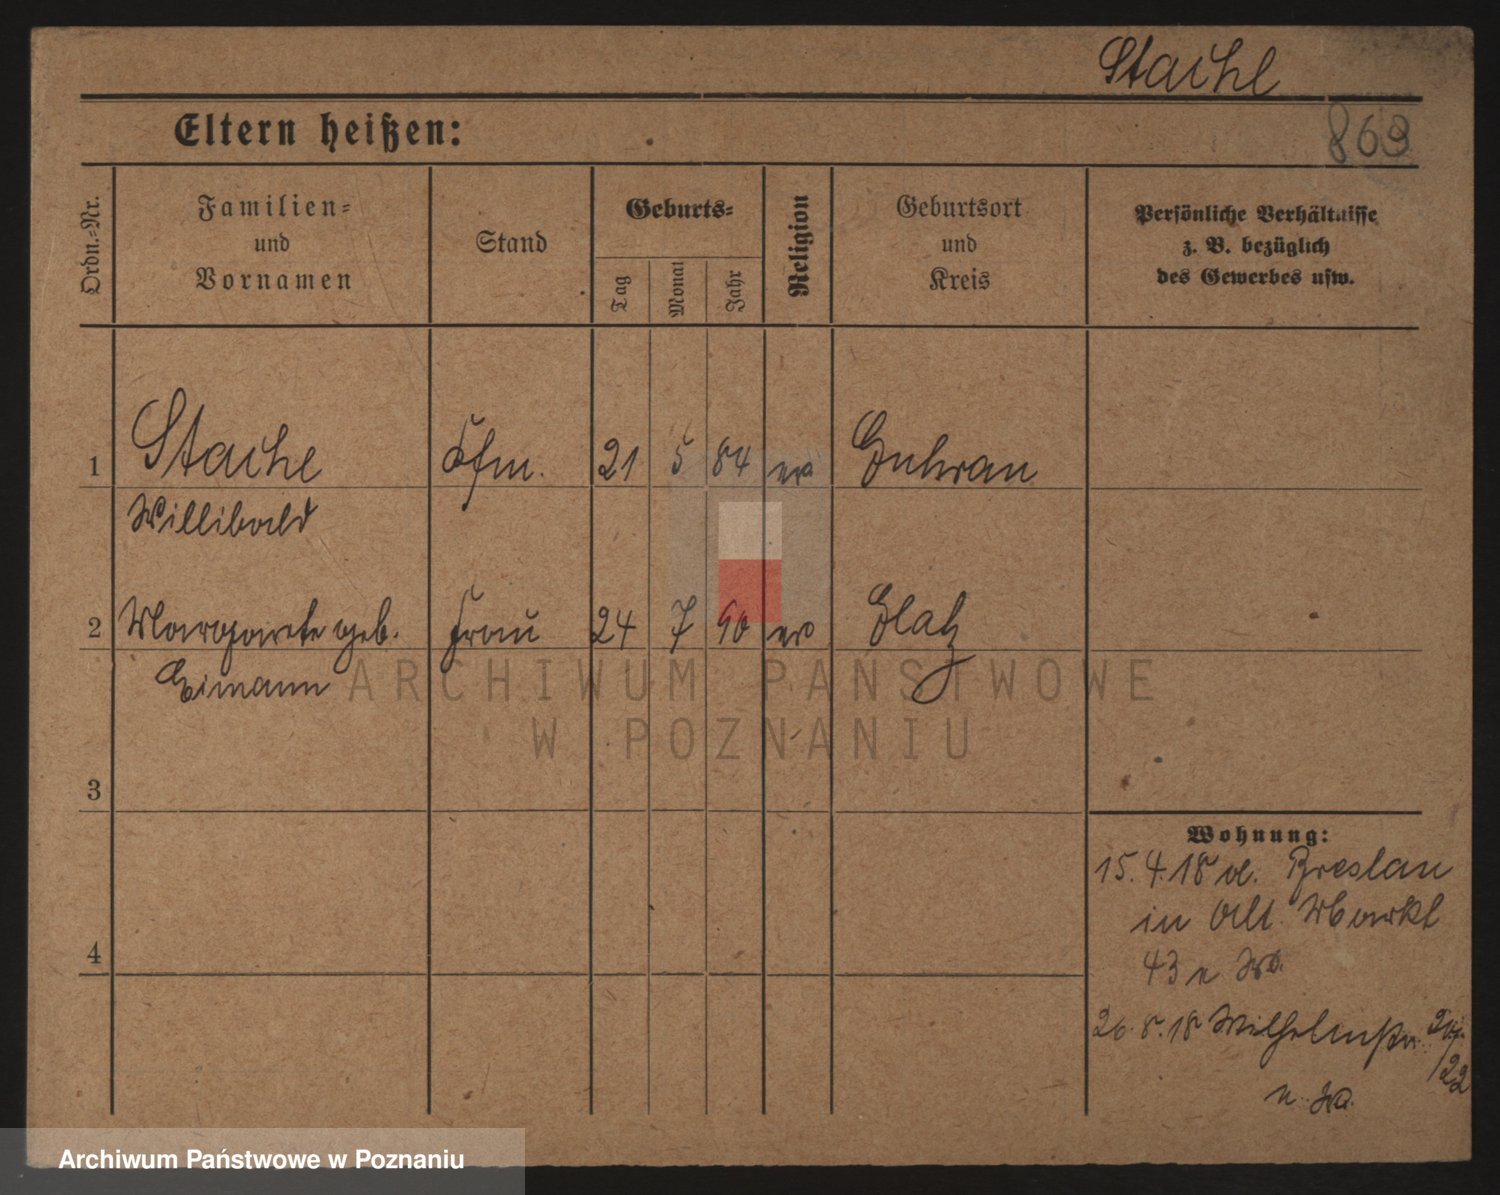 Stache
869
Eltern heißen:
Ordn.=Nr.
Familien=
und
Vornamen
Stand
Geburts=
Tag
Monat
Jahr
Religion
Geburtsort
und
Kreis
Persönliche Verhältnisse
z. B. bezüglich
des Gewerbes usw.
1 Stache Kfm. 21 5 84 ev Guhrau
Willibald
2 Margarete geb. Frau 24 7 90 ev Glatz
Eimann
3
4
Wohnung:
15.4.18 v. Breslau
in Alt. Markt
43
26.8.18 Wilhelmstr.
22
ARCHIWUM PAŃSTWOWE
W POZNANIU
Archiwum Państwowe w Poznaniu